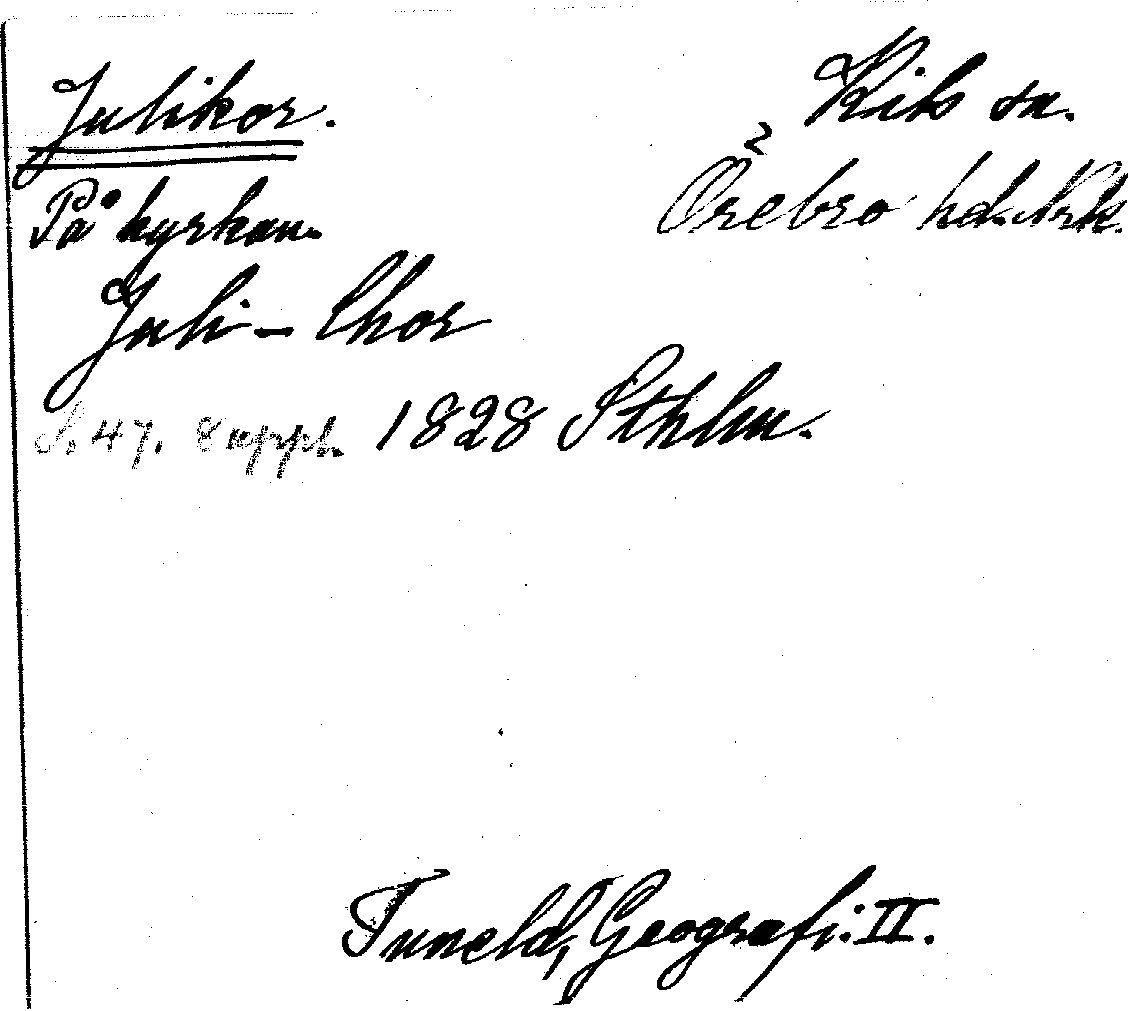 Julikor.
Kils sn.
På kyrkan.
Örebro hd. Nrk.
Juli - Chor
S. 47. 8 uppl. 1828 Sthlm.
Tuneld, Geografi. II.